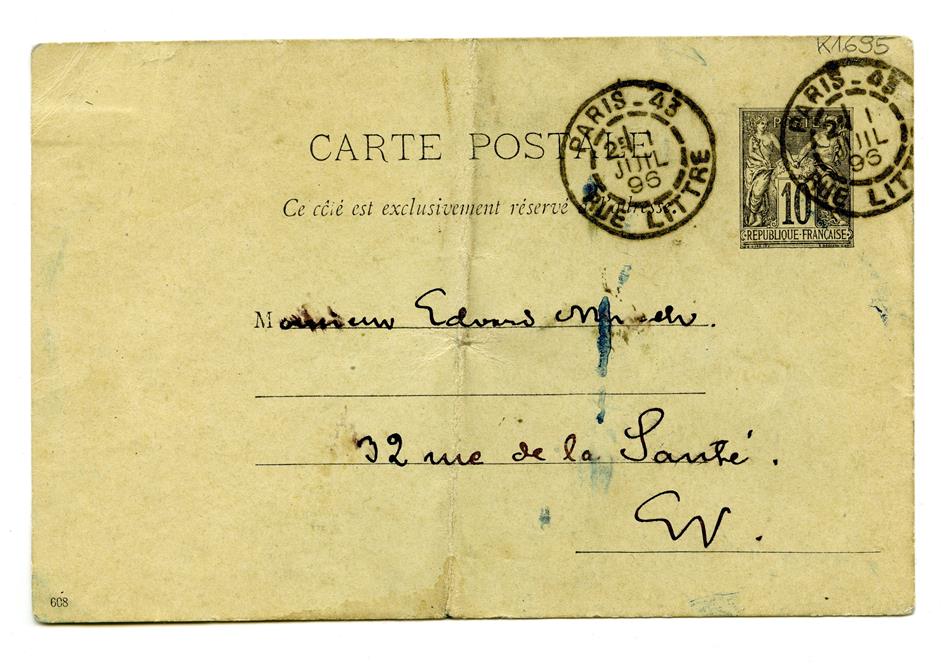 K1695
PARIS - 43
2E 1
JUIL
96
RUE LITTRE
PARIS - 43
2E 1
JUIL
96
RUE LITT
CARTE POSTALE
POSTE
10
REPUBLIQUE-FRANÇAISE
Ce côté est exclusivement réservé à l'adresse
Monsieur Edvard Munch.
32 rue de la Santé.
EV.
608